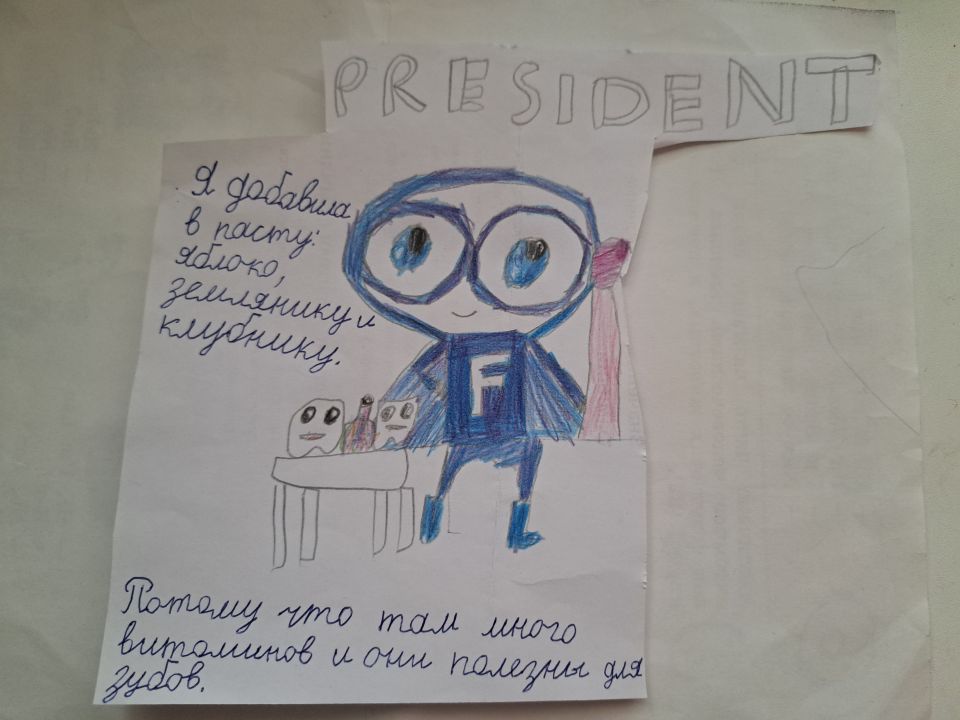 PRESIDENT
Я добавила
в пасту:
яблоко,
землянику и
клубнику.
F
Потому что там много
витаминов и они полезны для
зубов.